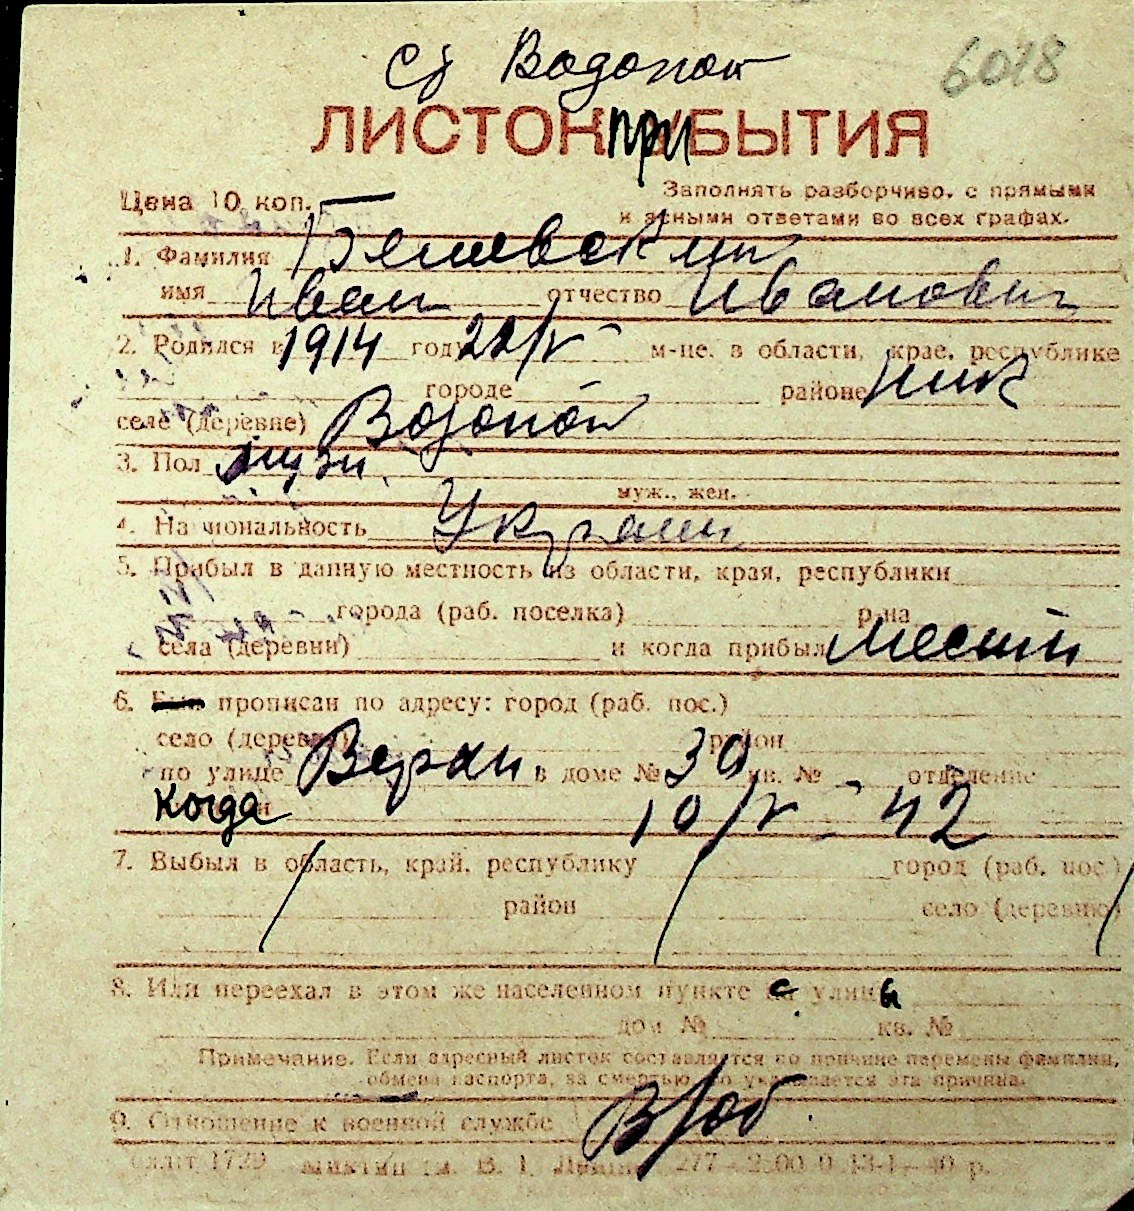 Сб Водопой
6018
ЛИСТОК ПРИБЫТИЯ
Цена 10 коп.
Заполнять разборчиво, с прямыми
и ясными ответами во всех графах.
1. Фамилия
имя Иван отчество Иванович
2. Родился в 1914 году 22/V м-це, в области, крае, республике
городе районе Ник
селе (деревне) Водопой
3. Пол мужи.
муж., жен.
4. Национальность Украин
5. Прибыл в данную местность из области, края, республики
города (раб. поселка) р-на
села (деревни) и когда прибыл местн
6. прописан по адресу: город (раб. пос.)
село (деревня) район
по улице Верхн в доме № 39 кв. № - отделение
когда 10/V - 42
7. Выбыл в область, край, республику город (раб. пос.)
район село (деревню)
8. Или переехал в этом же населенном пункте с улицы
дом № кв. №
Примечание. Если адресный листок составляется по причине перемены фамилии,
обмена паспорта, за смертью, то указывается эта причина.
9. Отношение к военной службе В/об
1729 им. В. І. Леніна 277 40 р.